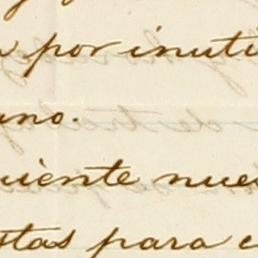 por inuti
uno.
uiente nues
stas para e